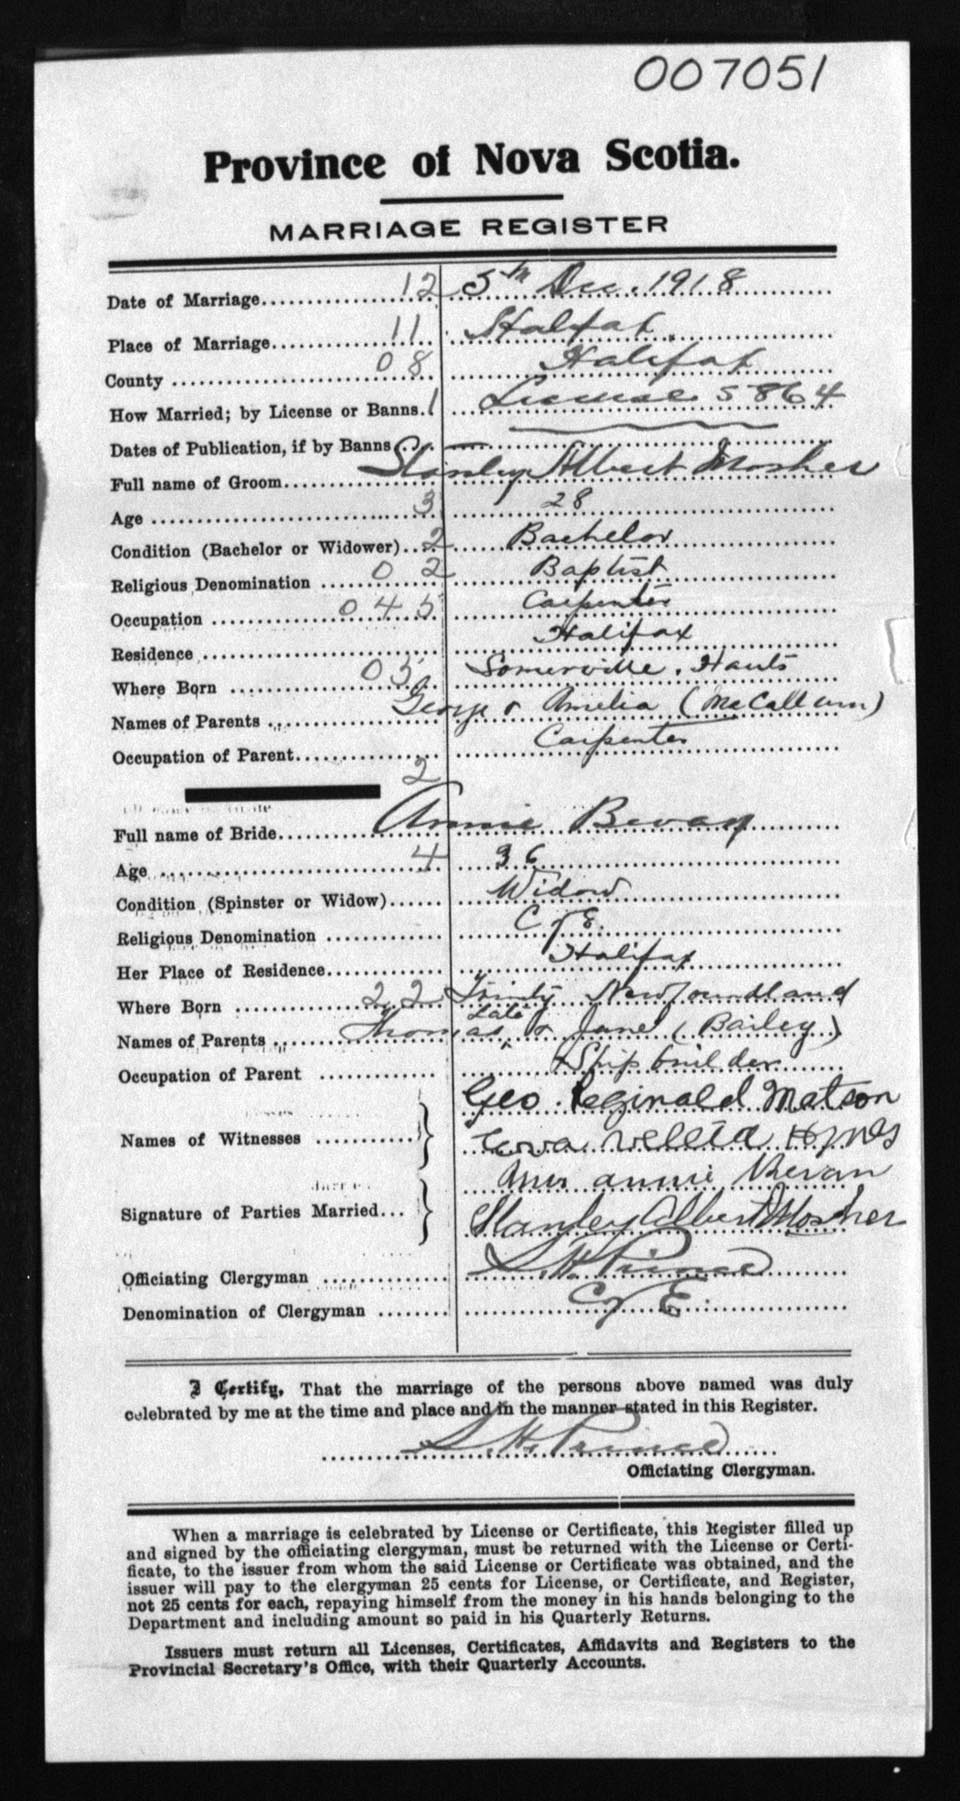 007051
Province of Nova Scotia.
MARRIAGE REGISTER
Date of Marriage 12 5th Dec. 1918
Place of Marriage 11 Halifax.
County 08 Halifax
How Married; by License or Banns. 1 License 5864
Dates of Publication, if by Banns
Full name of Groom Stanley Albert Mosher
Age 3 28
Condition (Bachelor or Widower) 2 Bachelor
Religious Denomination 02 Baptist
Occupation 045 Carpenter
Residence Halifax
Where Born 05 Somerville, Hants
Names of Parents George & Amelia (McCallum)
Occupation of Parent Carpenter
2
Full name of Bride Annie Bevan
Age 4 36
Condition (Spinster or Widow) Widow
Religious Denomination C of E.
Her Place of Residence Halifax
Where Born 22 Trinity Newfoundland
Names of Parents Thomas late & Jane (Bailey)
Occupation of Parent Ship builder
Geo. Reginald Matson
Names of Witnesses Hynes
Mrs annie Bevan
Signature of Parties Married Stanley Albert Mosher
Officiating Clergyman S. H. Prince
Denomination of Clergyman C of E.
I Certify, That the marriage of the persons above named was duly
celebrated by me at the time and place and in the manner stated in this Register.
S. H. Prince
Officiating Clergyman.
When a marriage is celebrated by License or Certificate, this Register filled up
and signed by the officiating clergyman, must be returned with the License or Certi-
ficate, to the issuer from whom the said License or Certificate was obtained, and the
issuer will pay to the clergyman 25 cents for License, or Certificate, and Register,
not 25 cents for each, repaying himself from the money in his hands belonging to the
Department and including amount so paid in his Quarterly Returns.
Issuers must return all Licenses, Certificates, Affidavits and Registers to the
Provincial Secretary's Office, with their Quarterly Accounts.